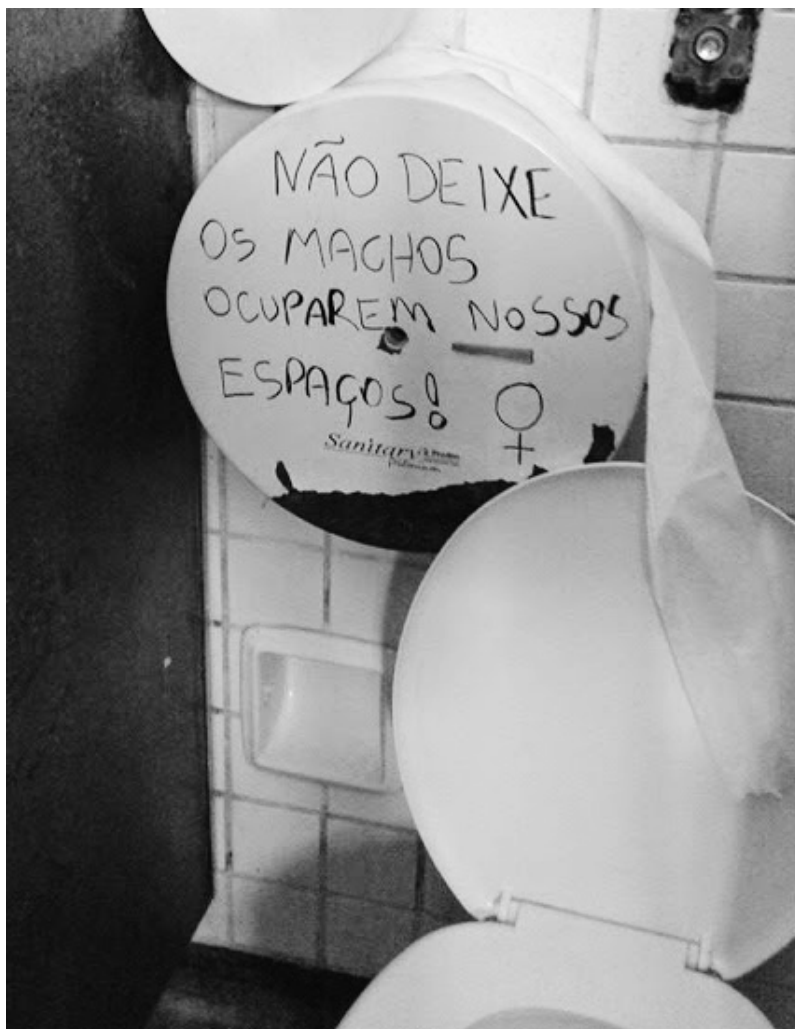 NÃO DEIXE
OS MACHOS
OCUPAREM NOSSOS
ESPAÇOS!
Sanitary